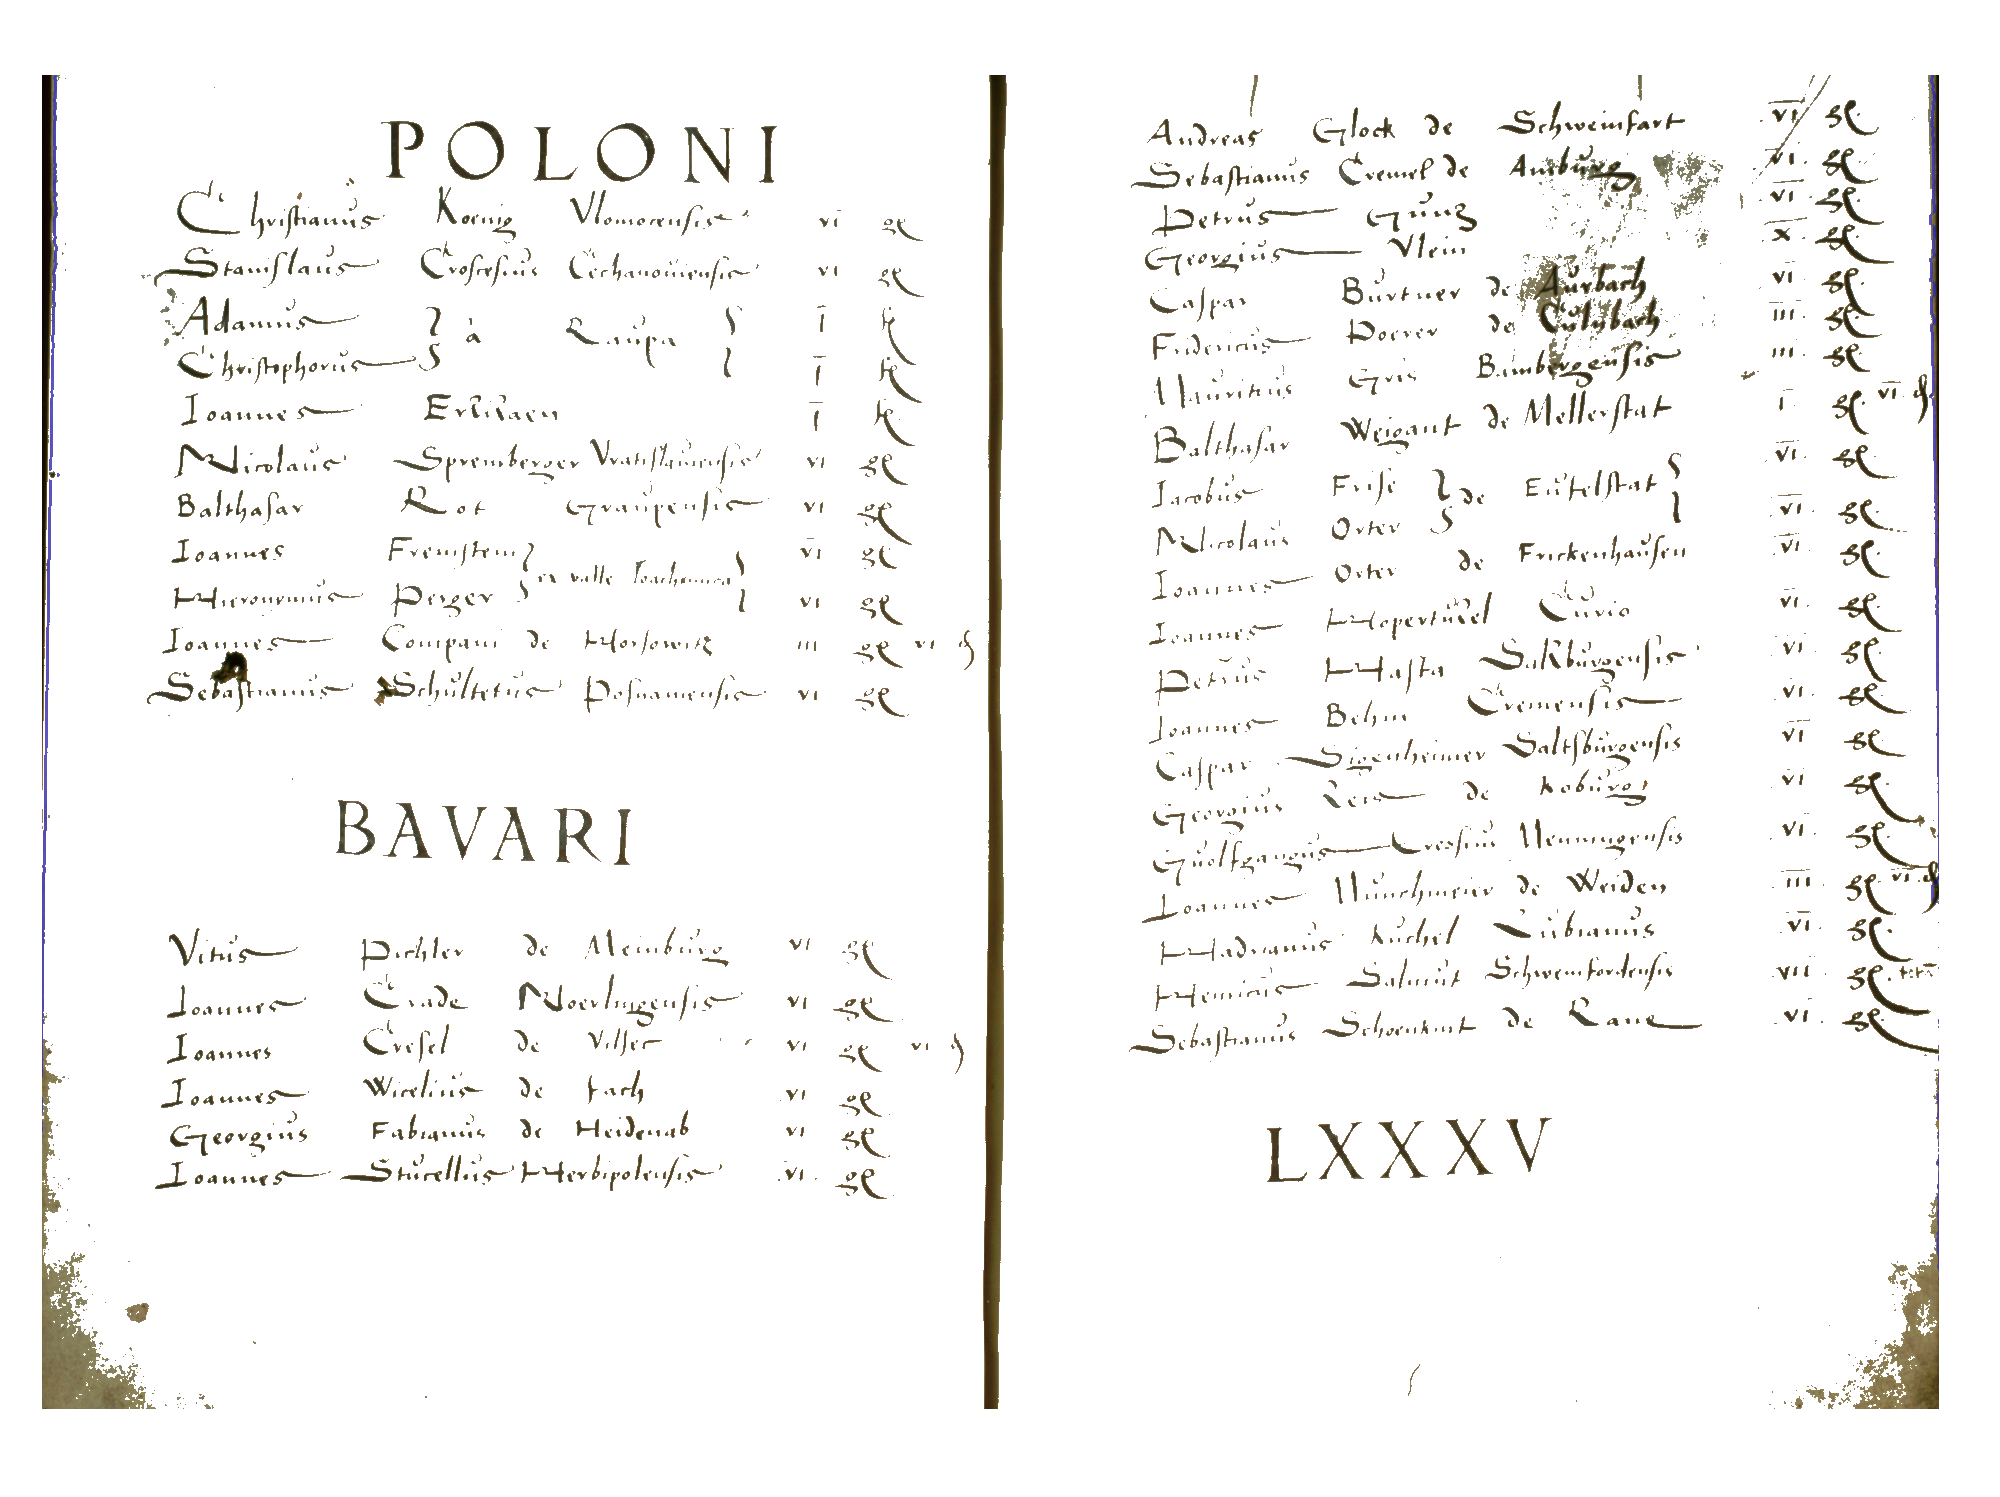 POLONI
Christianus Koenig Vlomocensis vi gl
Stanislaus Croscesius Cechanouiensis vi gl
Adamus
à Raupa
i fl
Christophorus i fl
Ioannes i fl
Nicolaus Spremberger Vratislauiensis vi gl
Balthasar Rot Graupensis vi gl
Ioannes Fremstein vi gl
ex valle Ioachimica
Hieronymus Perger vi gl
Ioannes Compani de Horsowitz iii gl vi d
Sebastianus Schultetus Posnaniensis vi gl
BAVARI
Vitus Pichler de Meinburg vi gl
Ioannes Crade Noerlingensis vi gl
Ioannes Cresel de Vilsec vi gl vi d
Ioannes Wicelius de Fach vi gl
Georgius Fabianus de Heidenab vi gl
Ioannes Stucellus Herbipolensis vi gl
Andreas Glock de Schweinfart vi gl
Sebastianus Cremel de Aurburg vi gl
Petrus Gunz vi gl
Georgius Vlein x gl
Caspar Burtner de Aurbach vi gl
Fridericus Poerer de Culnbach iii gl
Mauritius Gris Bambergensis iii gl
Balthasar Weigant de Mellerstat i gl vi d
Iacobus Frise vi gl
de Eutelstat
Nicolaus Orter vi gl
Ioannes Orter de Frickenhausen vi gl
Ioannes Curio vi gl
Petrus Hasta Salzburgensis vi gl
Ioannes Behm Cremensis vi gl
Caspar Sigenheimer Saltsburgensis vi gl
Georgius Reis de Koburg vi gl
Guolfgangus Cressius Menningensis vi gl
Ioannes Munchmeier de Weiden iii gl vi d
Hadrianus Kuchel Lubianus vi gl
Henricus Salmut Schweinfordensis vii gl
Sebastianus Schoenknit de Rane vi gl
LXXXV